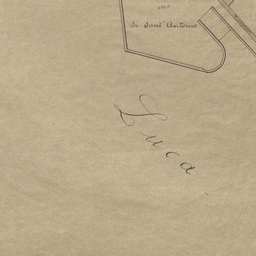 de Sant Antonio
Luca